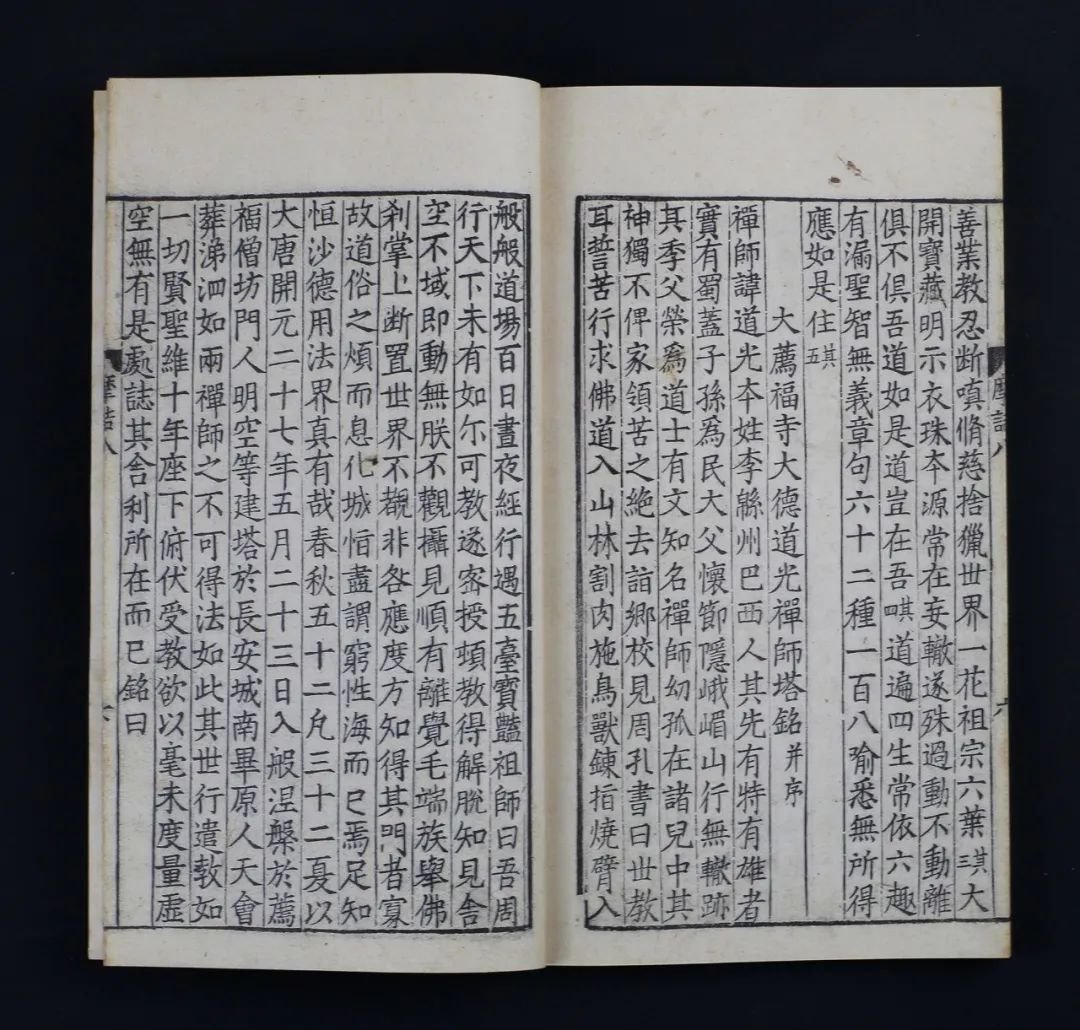 善業教忍斷嗔脩慈捨獵世界一花祖宗六葉其三大
開寶藏明示衣珠夲源常在妄轍遂殊過動不動離
俱不俱吾道如是道豈在吾其四道遍四生常依六趣
有漏聖智無義章句六十二種一百八喻悉無所得
應如是住其五
大薦福寺大德道光禪師塔銘并序
禪師諱道光夲姓李緜州巴西人其先有特有雄者
實有蜀蓋子孫為民大父懷節隱峨嵋山行無轍跡
其季父榮為道士有文知名禪師幼孤在諸兒中其
神獨不俾家領苦之絶去詣鄉校見周孔書曰世教
耳誓苦行求佛道入山林割肉施鳥獸鍊指燒臂入
摩詰八
六
般般道場百日晝夜經行遇五臺寶豔祖師曰吾周
行天下未有如尓可教遂密授頓教得解脫知見舍
空不域即動無朕不觀攝見順有離覺毛端族舉佛
刹掌上斷置世界不覩非咎應度方知得其門者寡
故道俗之煩而息化城恒盡謂窮性海而已焉足知
恒沙德用法界真有哉春秋五十二凢三十二夏以
大唐開元二十七年五月二十三日入般涅槃於薦
福僧坊門人明空等建塔於長安城南畢原人天會
葬涕泗如雨禪師之不可得法如此其世行遺教如
一切賢聖維十年座下俯伏受教欲以毫末度量虛
空無有是處誌其舍利所在而已銘曰
摩詰八